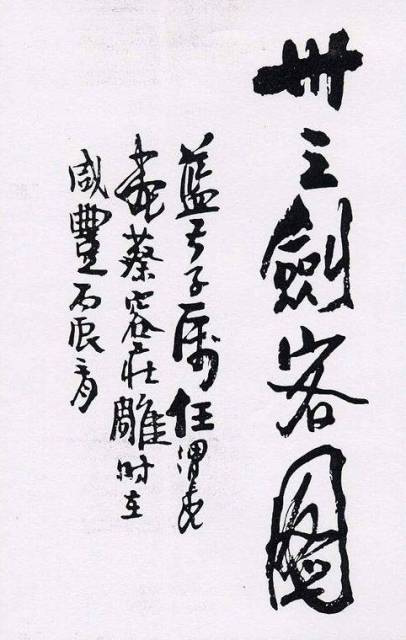 卅三劍客圖
藍子屬任渭長
畫蔡容莊雕時在
咸豐丙辰